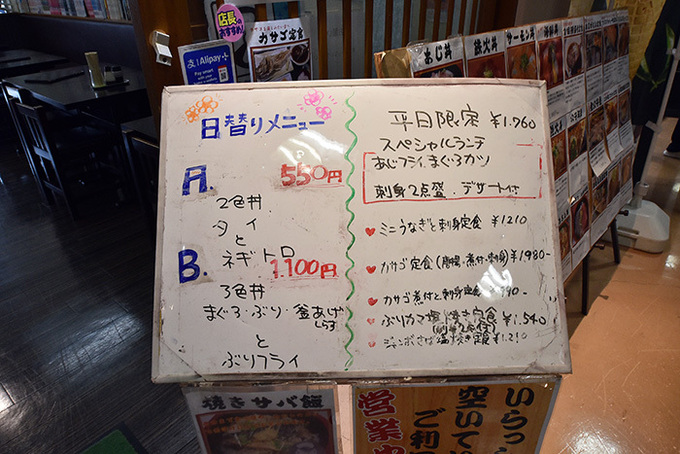 店長の
おすすめ!
カサゴ定食
Alipay+
あじ丼
鉄火丼
サーモン丼
海鮮丼
日替りメニュー
A. 550円
2色丼
タイ
と
ネギトロ
B. 1.100円
3色丼
まぐろ・ぶり・釜あげ
しらす
と
ぶりフライ
平日限定 ¥1.760
スペシャルランチ
あじフライ、まぐろカツ
刺身2点盛、デザート付
♥ ミニうなぎと刺身定食 ¥1210
♥ カサゴ定食(唐揚、煮付、刺身)¥1980-
♥ カサゴ煮付と刺身定食
♥ ぶりカマ塩焼き定食 ¥1.540
(刺身2点付)
♥ ジャンボさば塩焼き定食 ¥1.210
焼きサバ飯
営業中
いらっ
空いて
ご利